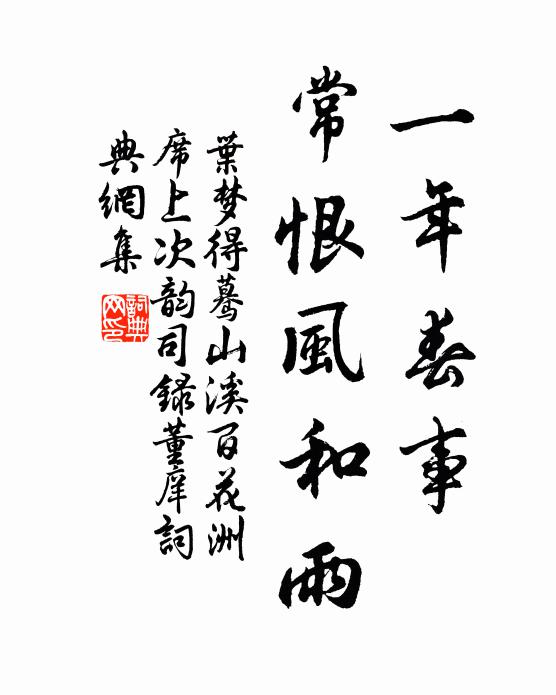 一年春事
常恨風和雨
葉梦得蓦山溪百花洲
席上次韵司録董庠詞
典網集
詞典网印